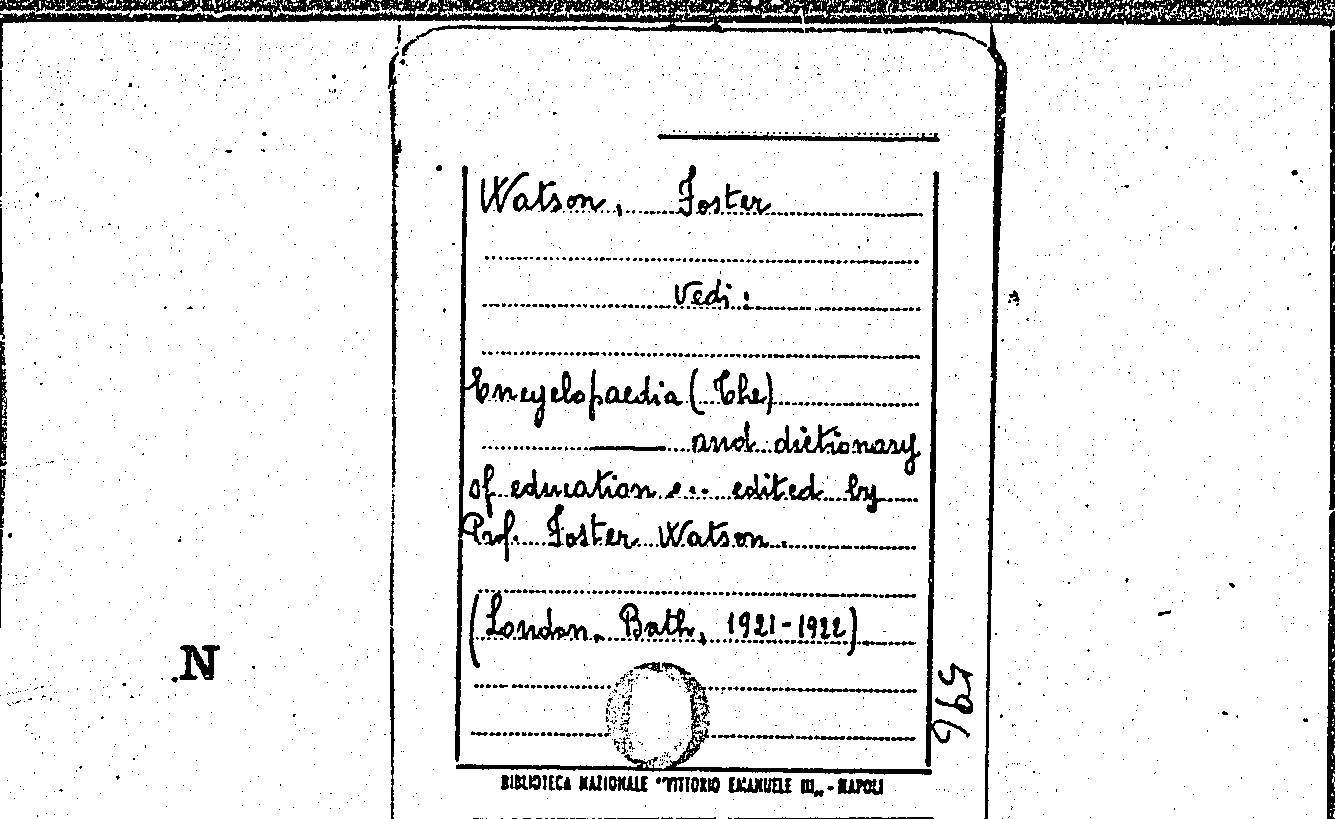 Watson, Foster
Vedi:
Encyclopaedia (The)
——— and dictionary
of education ... edited by
Prof. Foster Watson.
(London, Bath, 1921-1922)
596
N
BIBLIOTECA NAZIONALE "VITTORIO EMANUELE III„ - NAPOLI